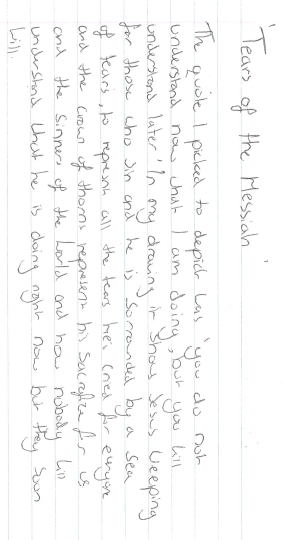 'Tears of the Messiah'
The quote I picked to depict was 'you do not
understand now what I am doing, but you will
understand later' In my drawing it shows Jesus weeping
for those who sin and he is sorrounded by a sea
of tears, to represent all the tears he's cried for everyone
and the crown of thorns represent his sacrafice for us
and the sinners of the world and how nobody will
understand what he is doing right now but they soon
will.